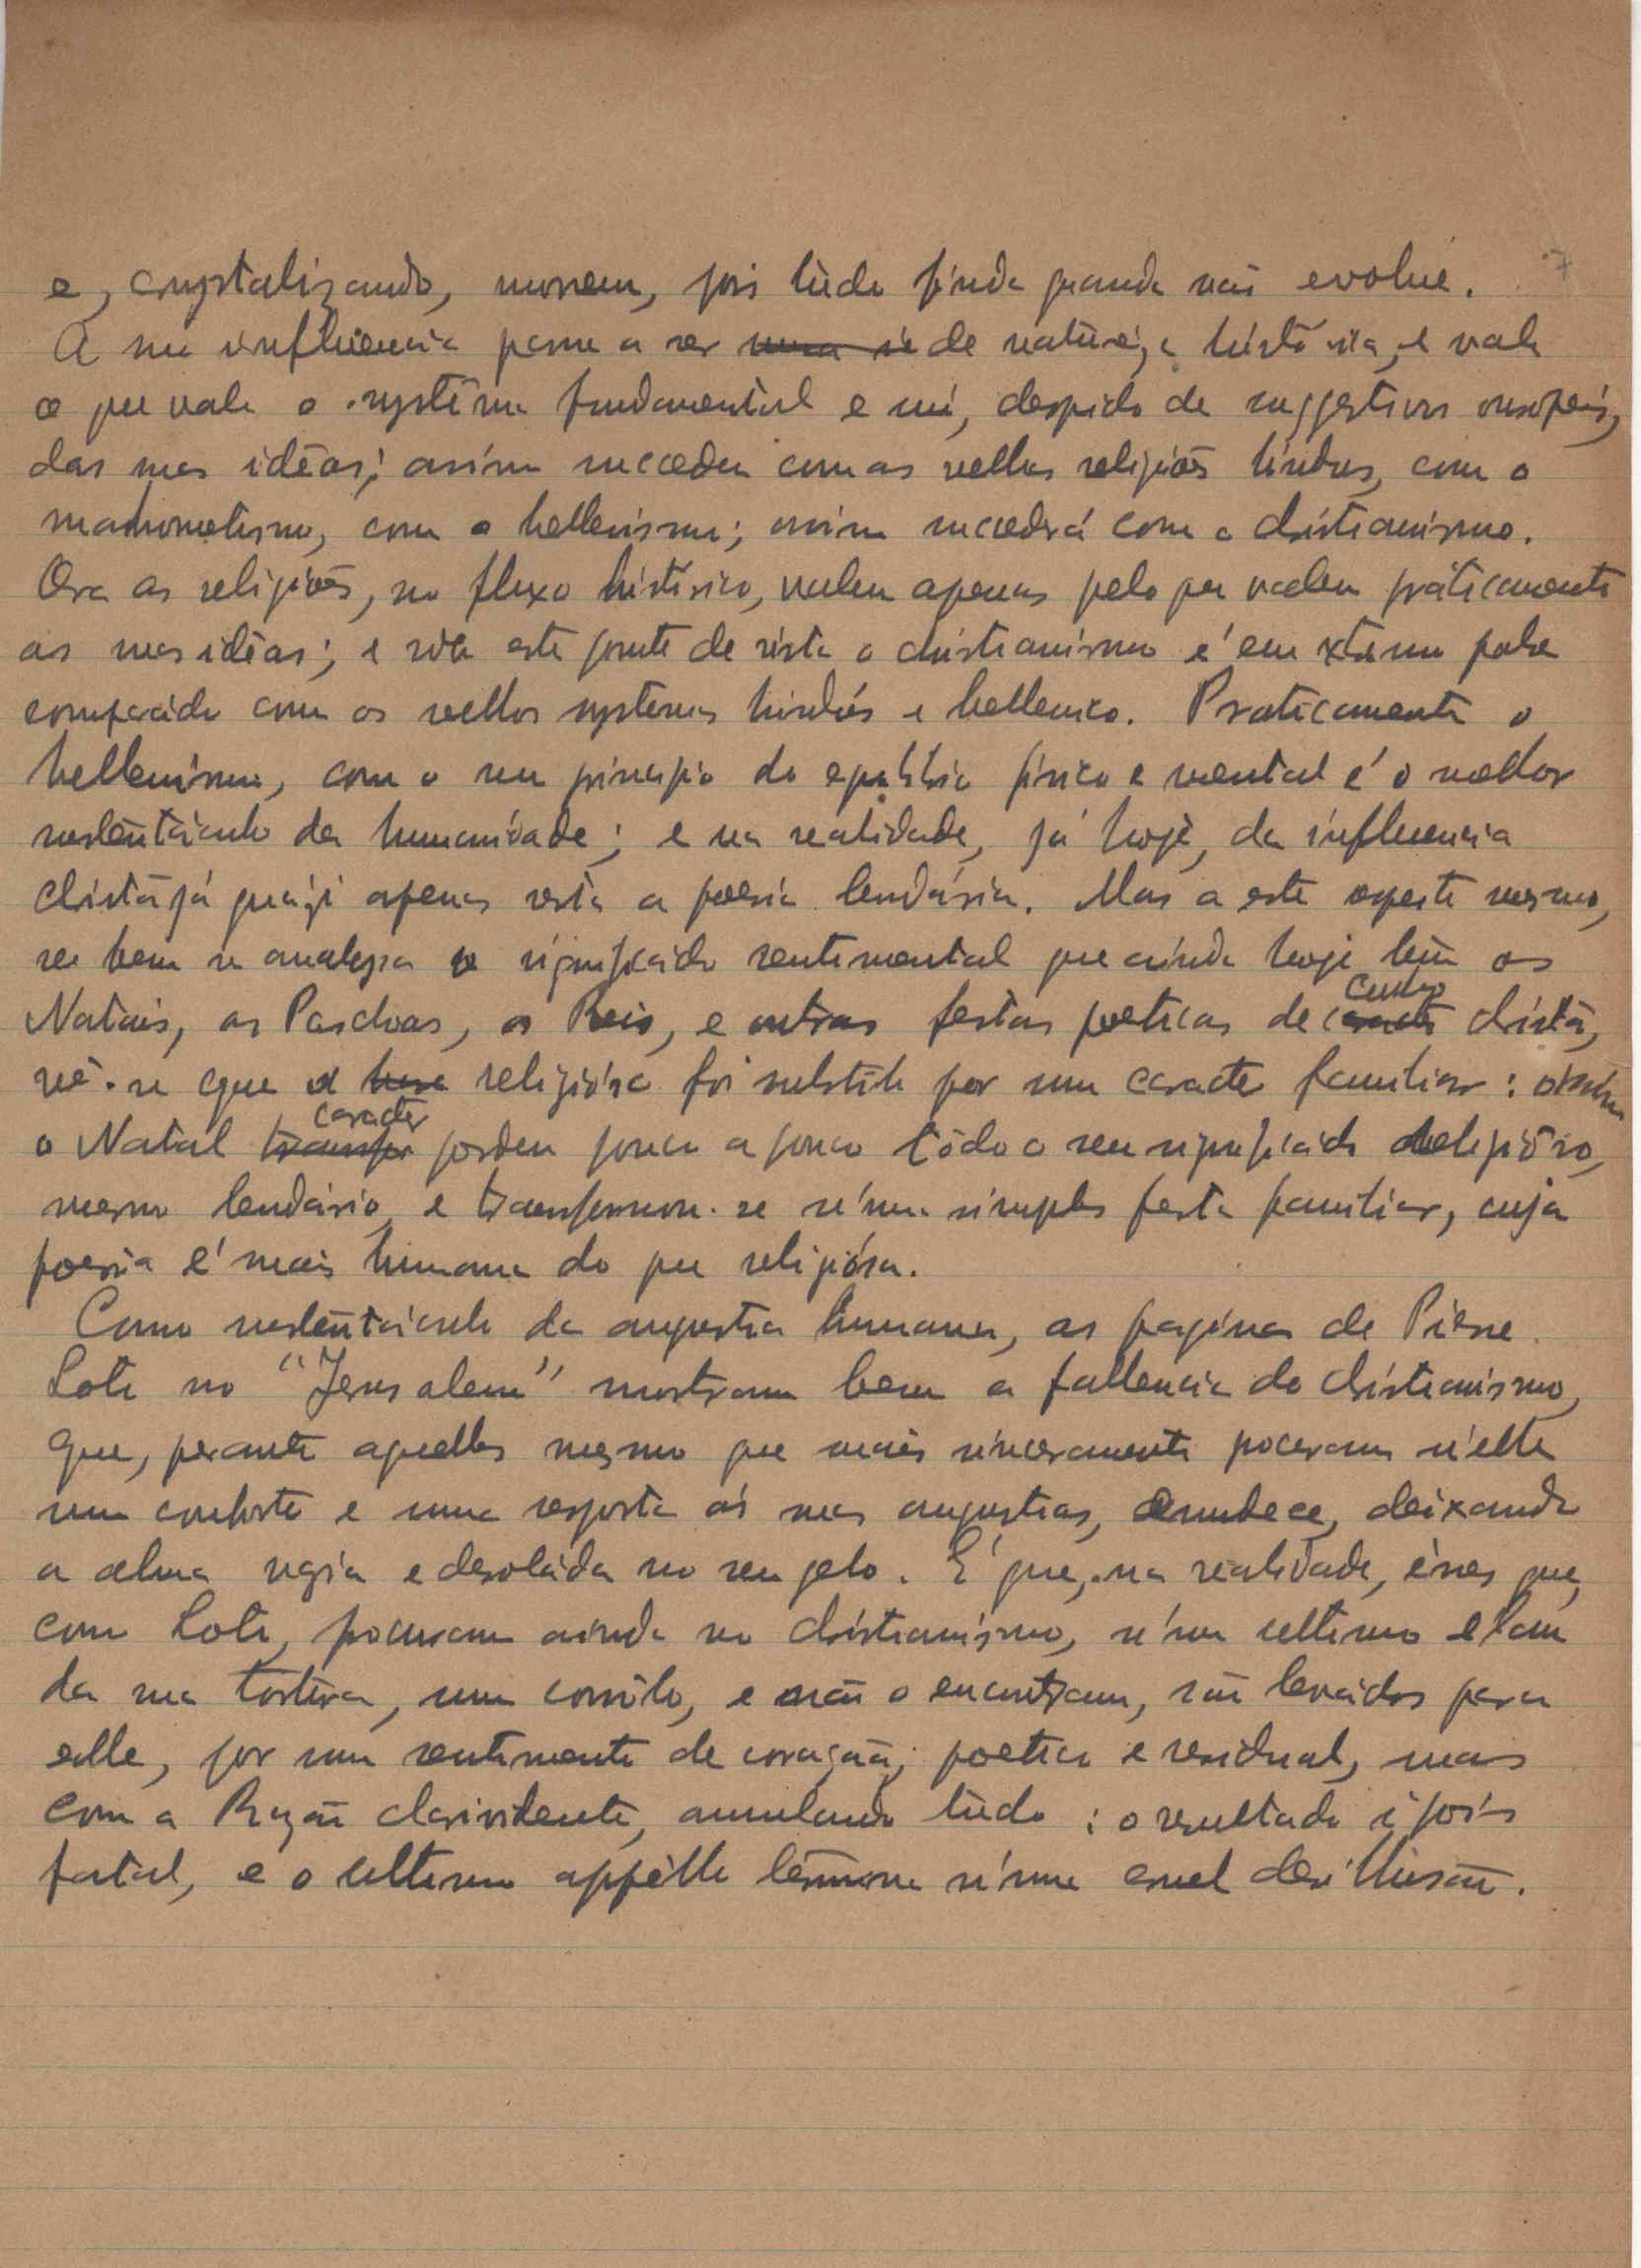 e, crystalizando, morrem, pois tùdo finda quando não evolue.
A sua influencia passa a ser de natureza histórica, e vale
o que vale o systêma fundamental e nú, despido de suggestivos ouropeis,
das suas idêas; assim succedeu com as velhas religiões hindus, com o
mahometismo, com o hellenismo; assim succederá com o christianismo.
Ora as religiões, no fluxo histórico, valem apenas pelo que valem práticamente
as suas idêas; e sob este ponto de vista o christianismo é em extremo pobre
comparado com os velhos systemas hindús e hellenico. Praticamente o
hellenismo, com o seu principio do equilibrio fisico e mental é o melhor
sustentáculo da humanidade; e na realidade, já hoje, da influencia
christã já quázi apenas resta a poesia lendária. Mas a este aspecto mesmo,
se bem se analysa o significado sentimental que ainda hoje têm os
Natais, as Paschoas, os Reis, e outras festas poeticas de cunho christã,
vê-se que o religiósa foi substituido por um caracter familiar: assim
o Natal perdeu pouco a pouco tôdo o seu significado caracter religiôso,
mesmo lendário, e transformou-se n'uma simples festa familiar, cuja
poesia é mais humana do que religiósa.
Como sustentáculo da angustia humana, as paginas de Pierre
Loti no "Jerusalem" mostram bem a fallencia do christianismo,
que, perante aquelles mesmo que mais sinceramente procuram n'elle
um conforto e uma resposta ás suas angustias, emudece, deixando
a alma vazia e desoláda no seu gelo. É que, na realidade, esses que,
como Loti, procuram ainda no christianismo, n'um ultimo elam
da sua tortura, um consôlo, e não o encontram, são levados para
elle, por um sentimento de coração, poetico e residual, mas
com a Razão clarividente, annulando tùdo: o resultado é pois
fatal, e o ultimo appêllo termina n'uma cruel desillusão.